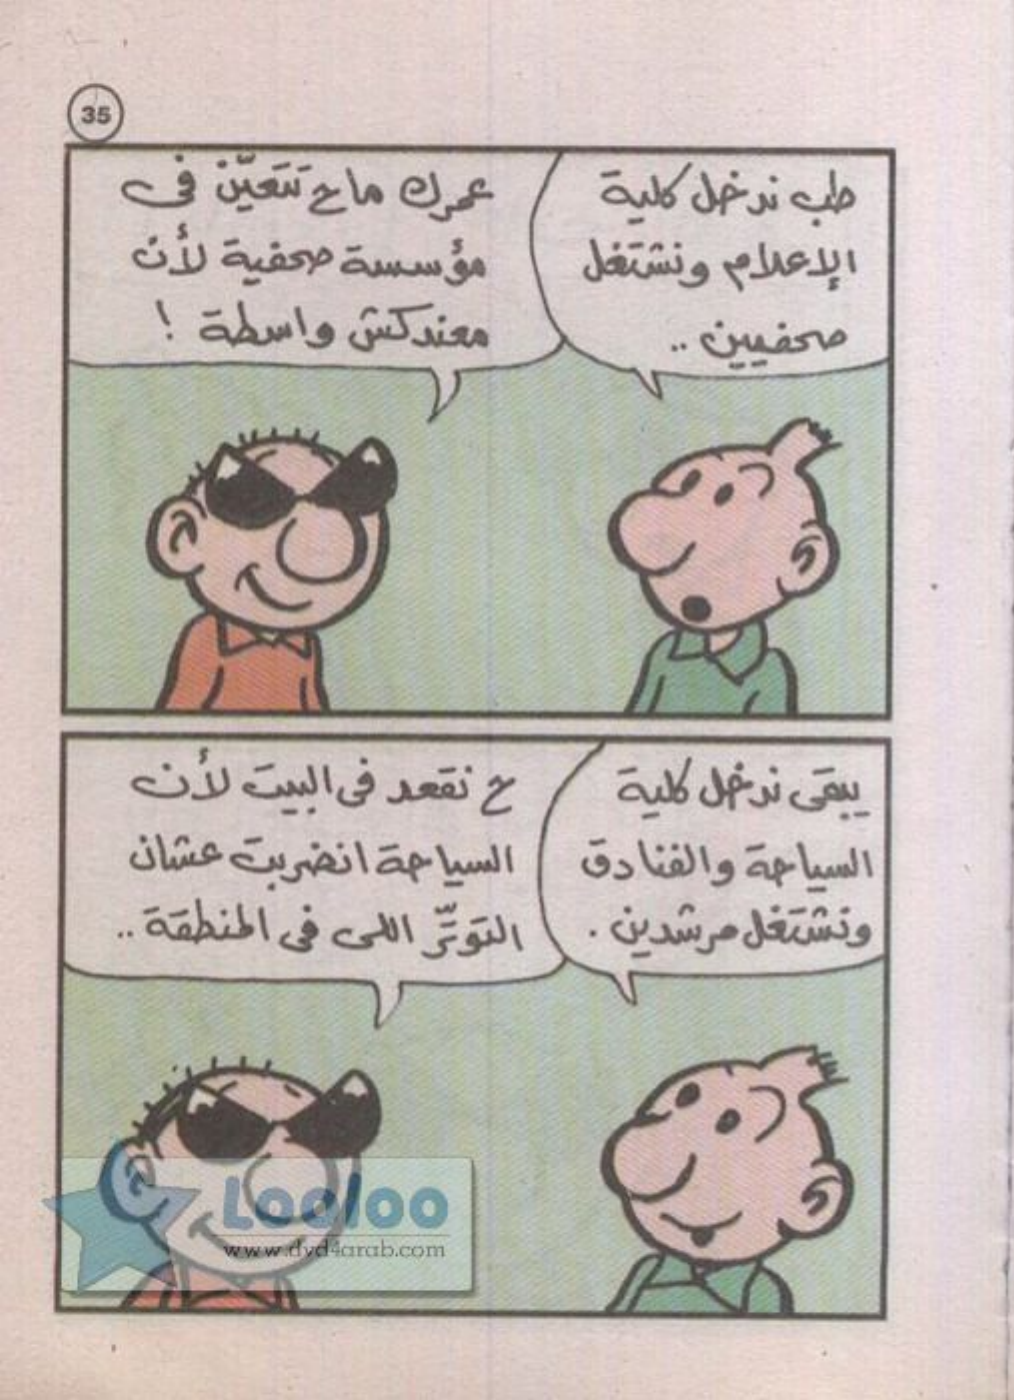 35
طب ندخل كلية
الإعلام ونشتغل
صحفيين ..
عمرك ماح تتعيّن فى
مؤسسة صحفية لأن
معندكش واسطة !
يبقى ندخل كلية
السياحة والفنادق
ونشتغل مرشدين .
ح نقعد فى البيت لأن
السياحة انضربت عشان
التوتّر اللى فى المنطقة ..
Looloo
www.dvd4arab.com